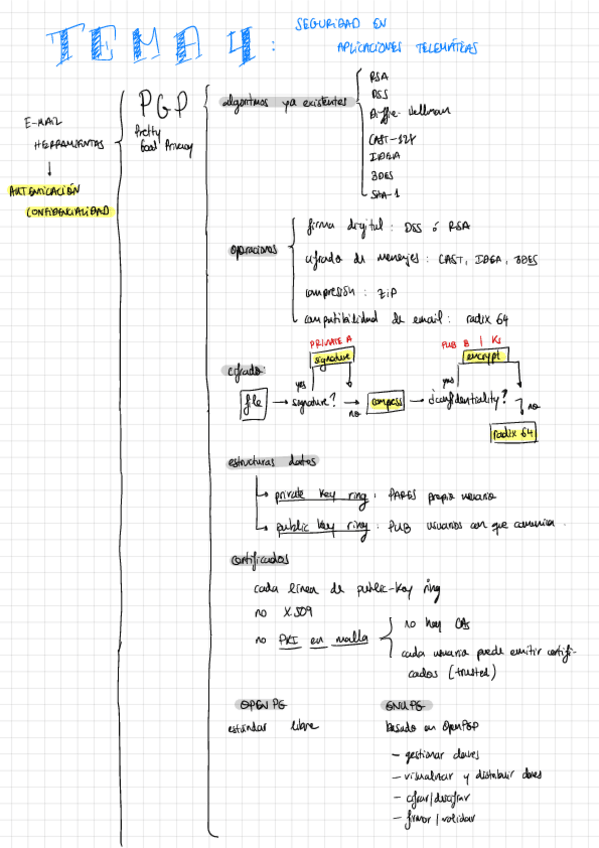 TEMA 4:
SEGURIDAD EN
APLICACIONES TELEMÁTICAS
E-MAIL
HERRAMIENTAS
AUTENTICACIÓN
CONFIDENCIALIDAD
PGP
Pretty
Good Privacy
algoritmos ya existentes
RSA
DSS
Diffie-Hellman
CAST-128
IDEA
3DES
SHA-1
operaciones
firma digital: DSS ó RSA
cifrado de mensajes: CAST, IDEA, 3DES
compresión: ZIP
compatibilidad de email: radix 64
cifrado:
PRIVATE A
signature
PUB B | Ks
encrypt
yes
yes
file → signature? → compress → ¿confidentiality?
no
no
radix 64
estructuras datos
private key ring: PARES propio usuario
public key ring: PUB usuarios con que comunica.
certificados
cada línea de public-key ring
no X.509
no PKI en malla
no hay CAs
cada usuario puede emitir certifi-
cados (trusted)
OPENPG
estándar libre
GNUPG
basado en OpenPGP
- gestionar claves
- visualizar y distribuir claves
- cifrar/descifrar
- firmar/validar